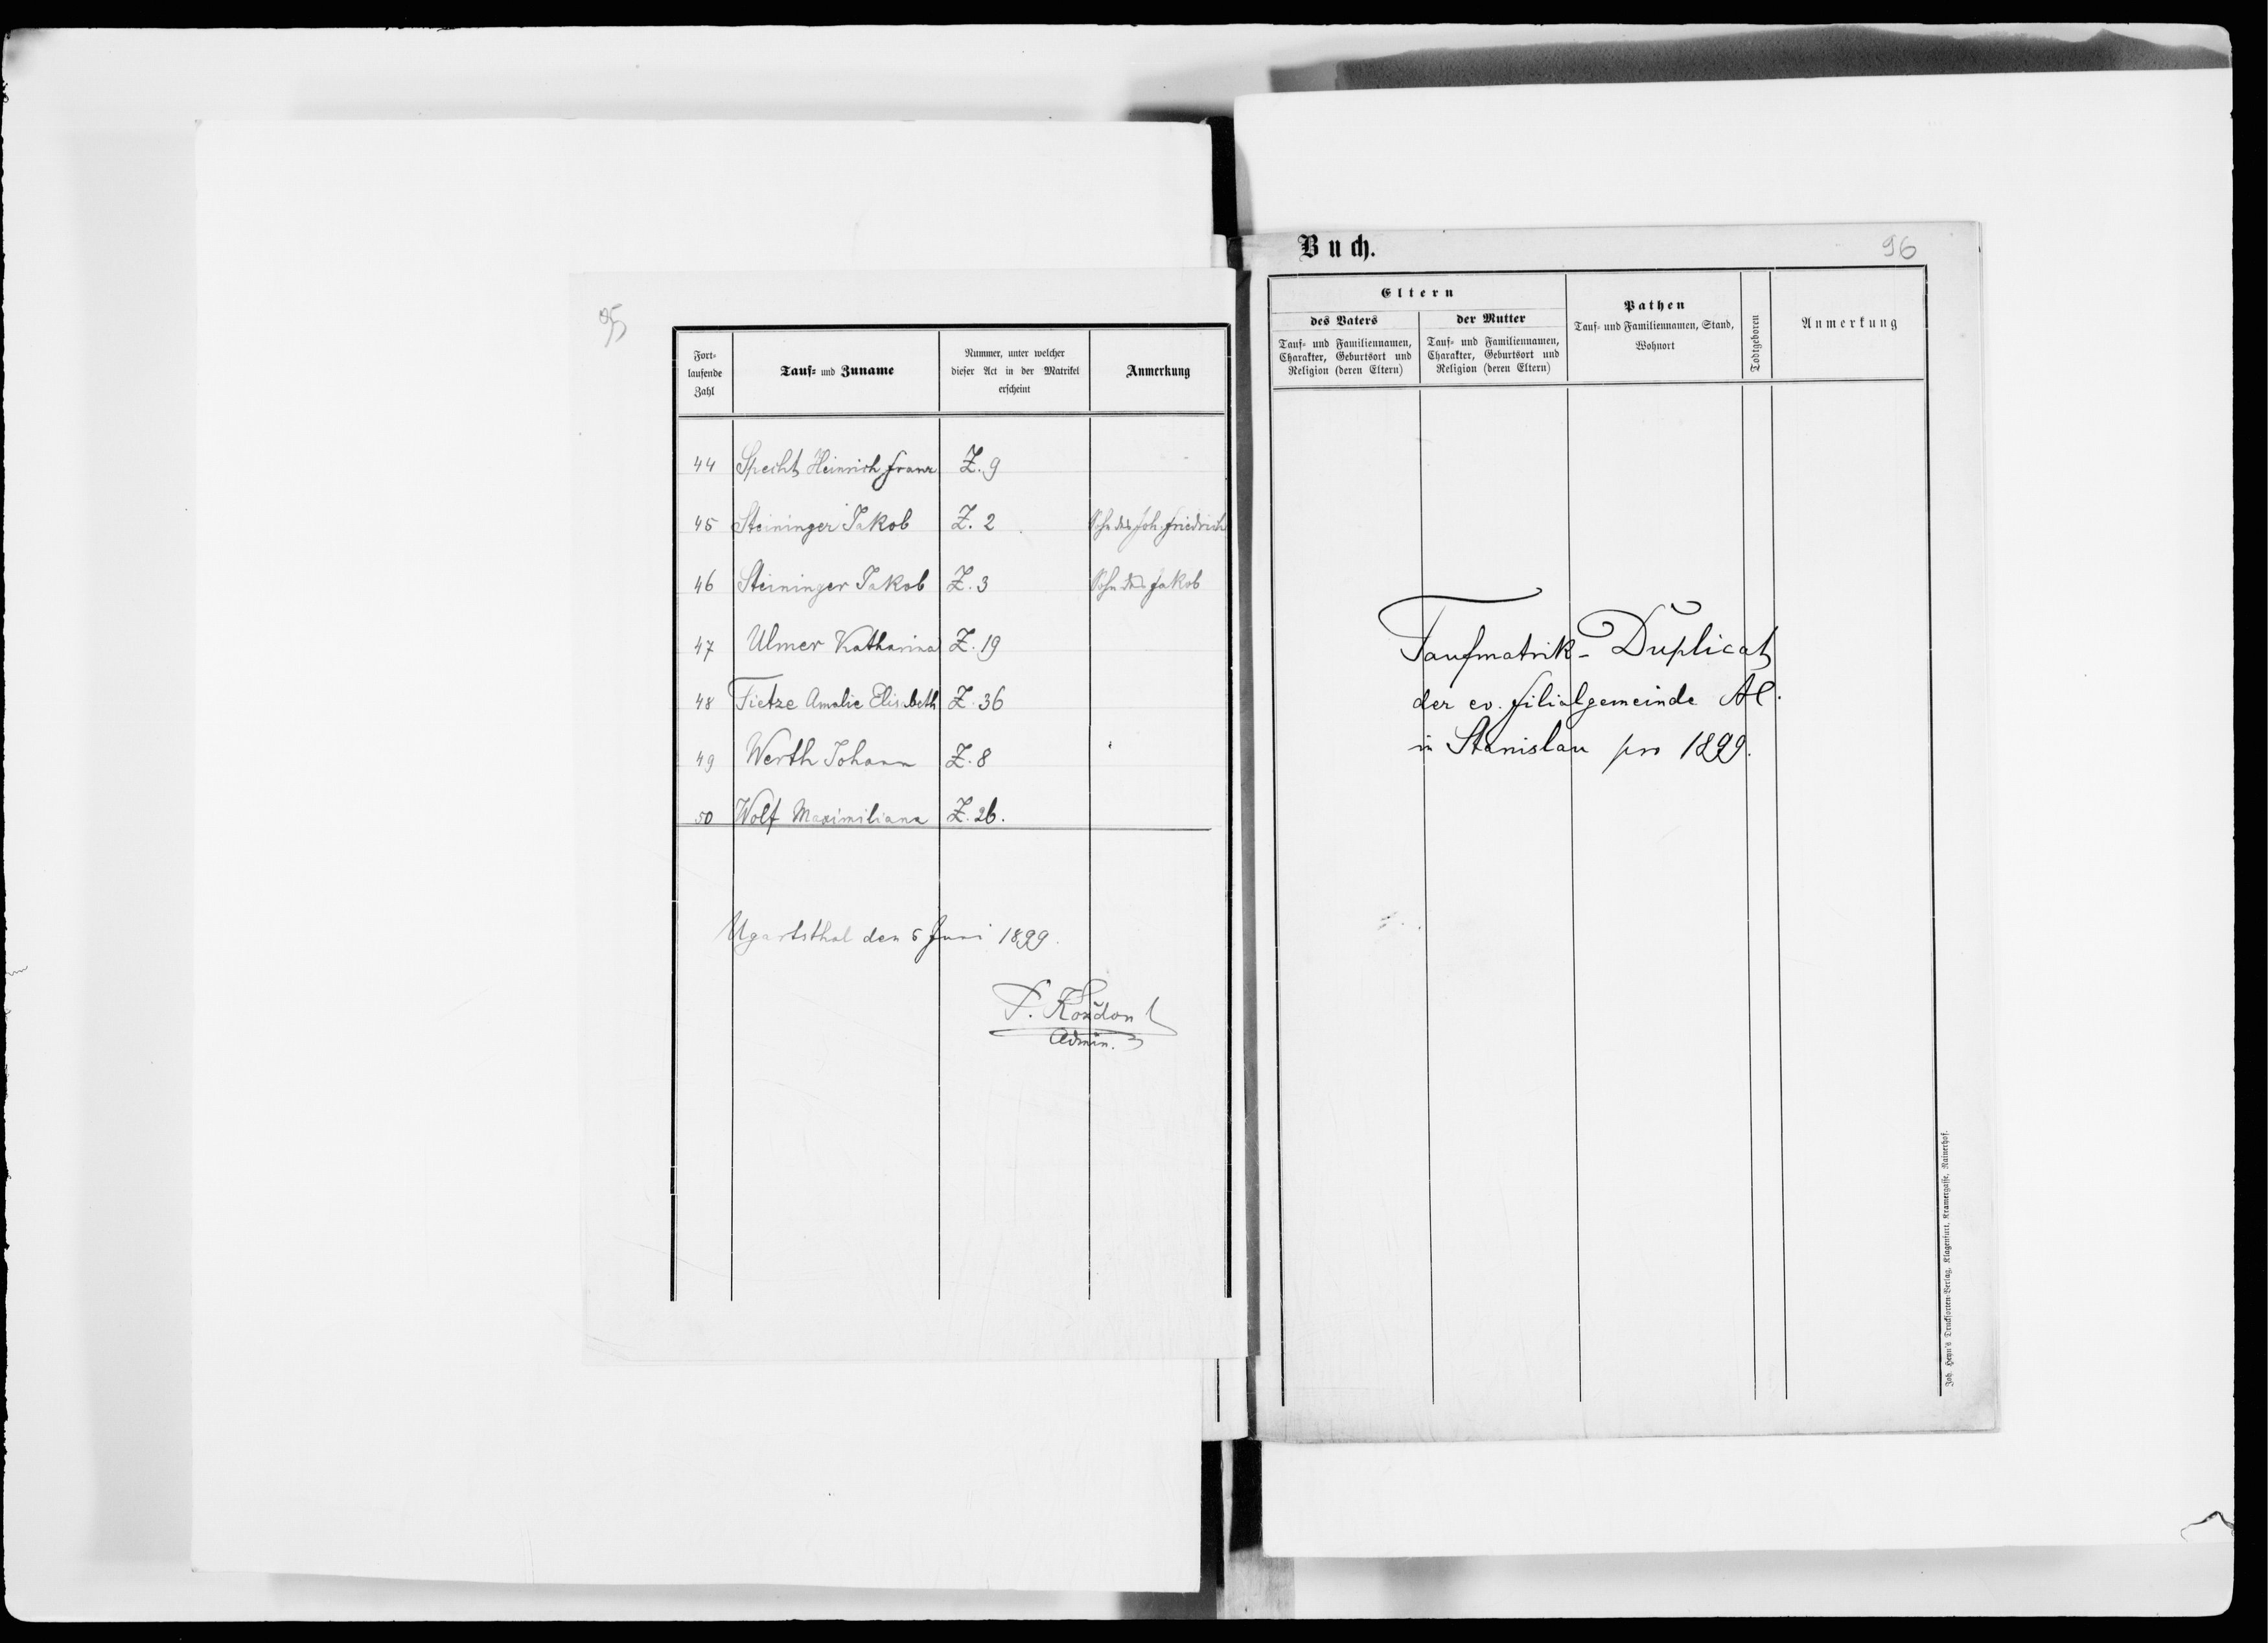 95
Fort-
laufende
Zahl
Tauf- und Zuname
Nummer, unter welcher
dieser Act in der Matrikel
erscheint
Anmerkung
44 Specht Heinrich Franz Z. 9
45 Steininger Jakob Z. 2 Sohn des Joh. Friedrich
46 Steininger Jakob Z. 3 Sohn des Jakob
47 Ulmer Katharina Z. 19
48 Tietze Amalie Elisabeth Z. 36
49 Werth Johann Z. 8
50 Wolf Maximiliana Z. 26.
Ugartsthal den 5 Juni 1899.
Admin.
Buch.
96
Eltern
des Vaters
Tauf- und Familiennamen,
Charakter, Geburtsort und
Religion (deren Eltern)
der Mutter
Tauf- und Familiennamen,
Charakter, Geburtsort und
Religion (deren Eltern)
Pathen
Tauf- und Familiennamen, Stand,
Wohnort
Todtgeboren
Anmerkung
Taufmatrik-Duplicat
der ev. Filialgemeinde AC.
in Stanislau pro 1899.
Joh. Heyn's Drucksorten-Verlag, Klagenfurt, Kramergasse, Rainerhof.